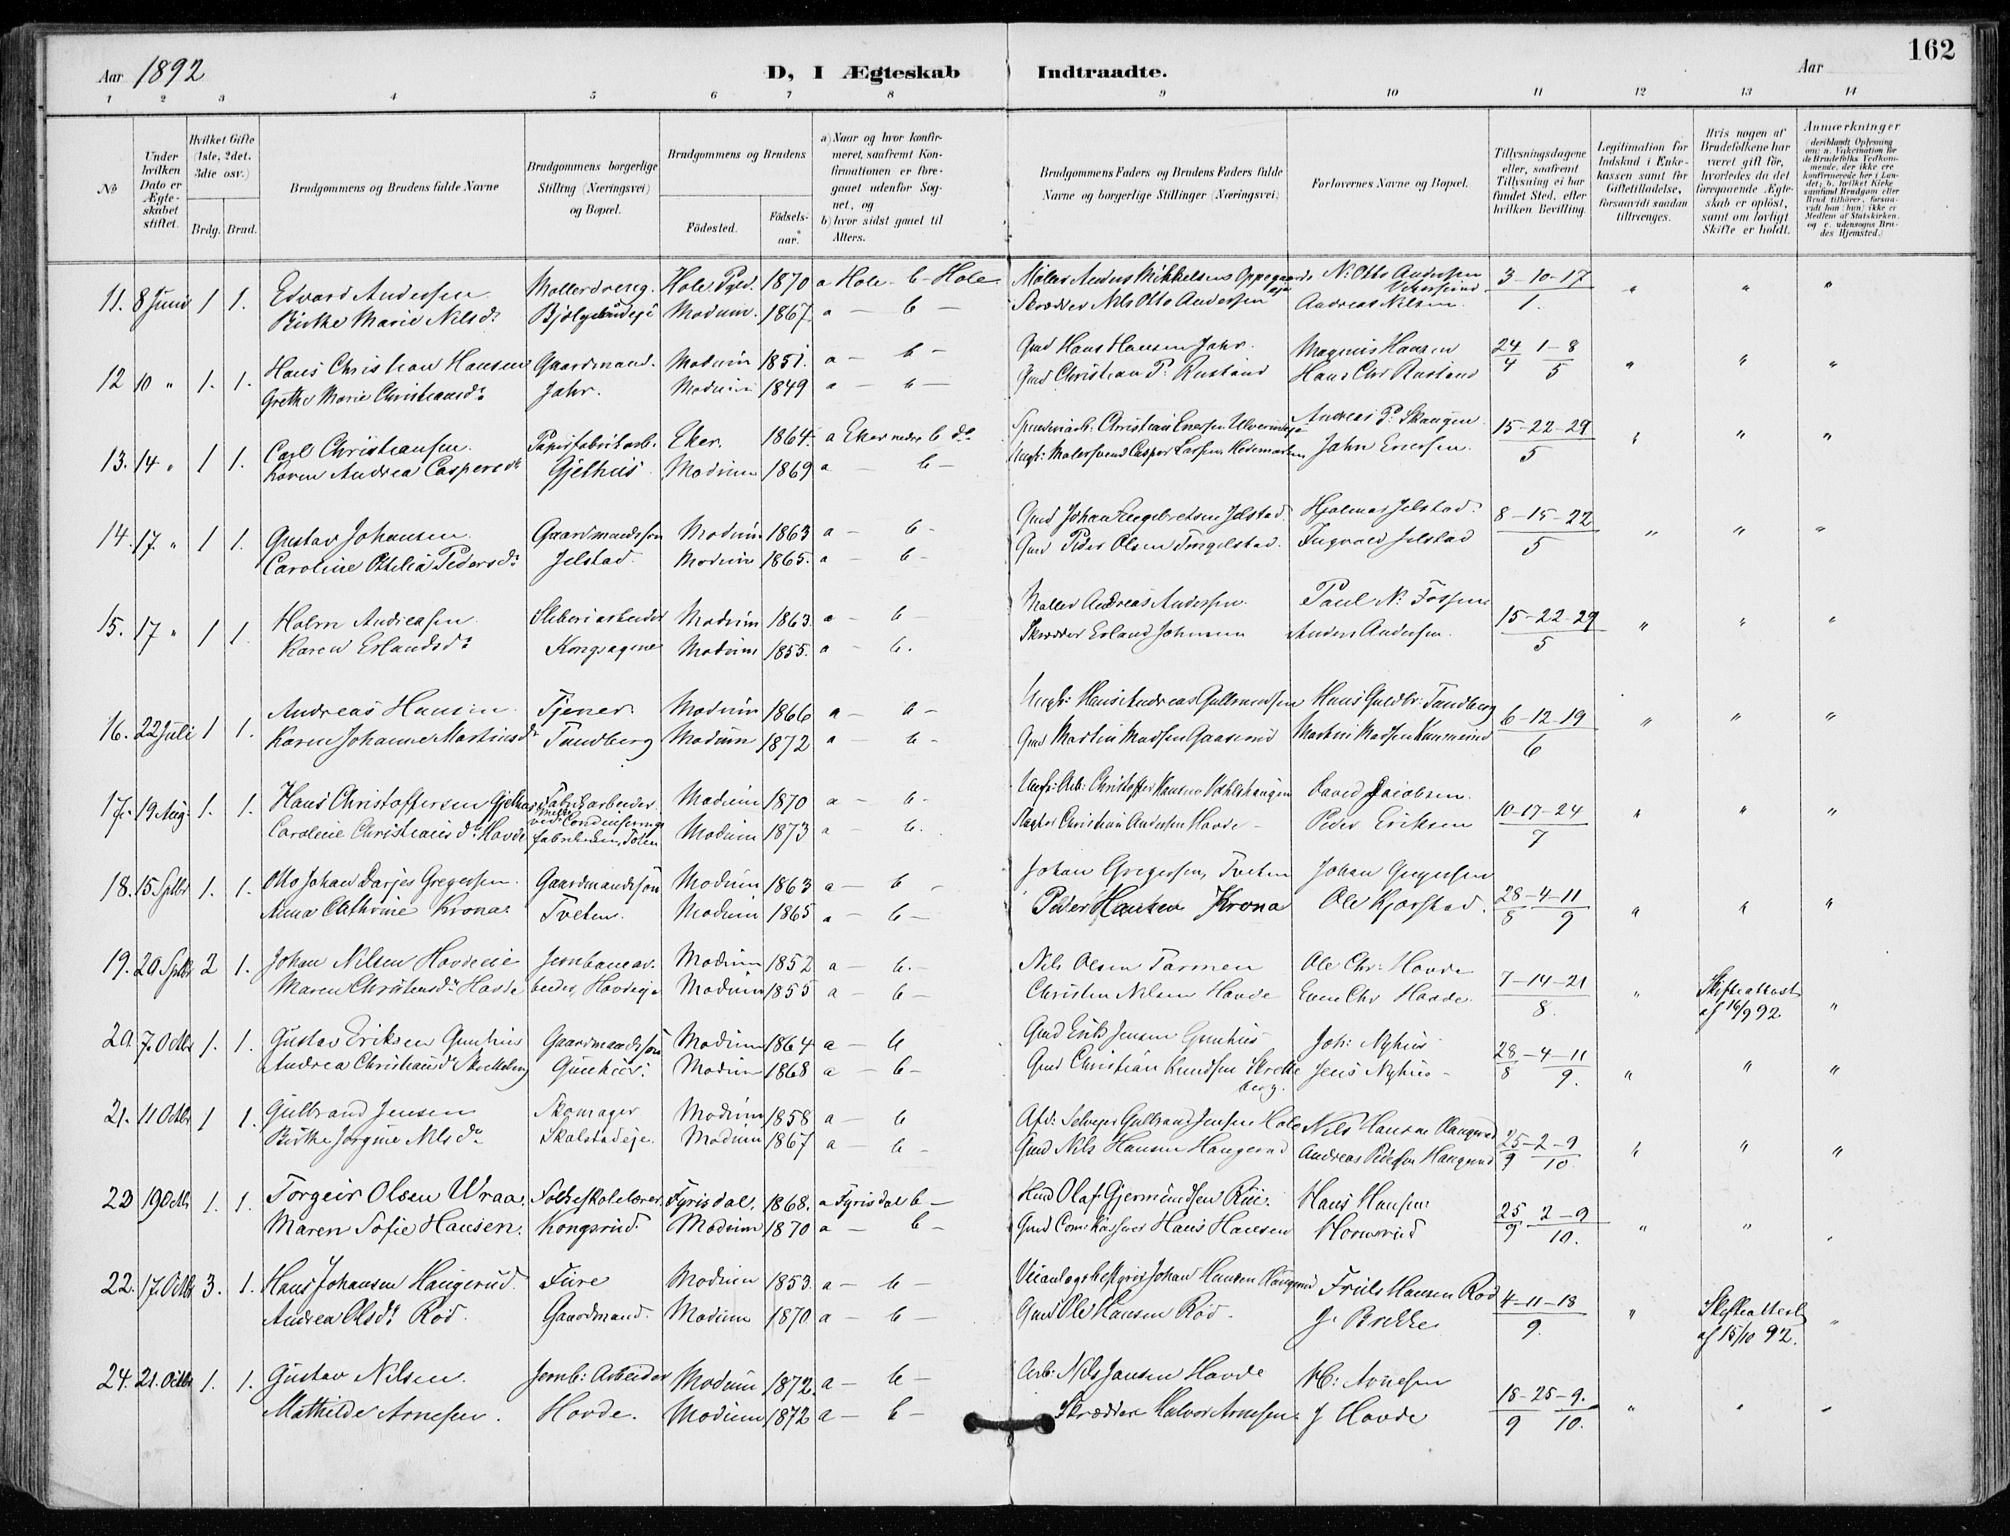 162
Aar 1892 D, I Ægteskab Indtraadte. Aar
1 2 3 4 5 6 7 8 9 10 11 12 13 14
№
Under hvilken Dato er Ægteskabet stiftet.
Hvilket Gifte (1ste, 2det, 3die osv.)
Brdg. Brud.
Brudgommens og Brudens fulde Navne
Brudgommens borgerlige Stilling (Næringsvei) og Bopæl.
Brudgommens og Brudens
Fødested. Fødselsaar.
a) Naar og hvor konfirmeret, saafremt Konfirmationen er foregaaet udenfor Sognet, og
b) hvor sidst gaaet til Alters.
Brudgommens Faders og Brudens Faders fulde Navne og borgerlige Stillinger (Næringsvei)
Forlovernes Navne og Bopæl.
Tillysningsdagene eller, saafremt Tillysning ei har fundet Sted, efter hvilken Bevilling.
Legitimation for Indskud i Enkekassen samt for Giftetilladelse, forsaavidt saadan tiltrænges.
Hvis nogen af Brudefolkene har været gift før, hvorledes da det foregaaende Ægteskab er opløst, samt om lovligt Skifte er holdt.
Anmærkninger
11. 8 Juni 1 1. Edvard Andersen Møllerdreng. Hole Pgld. 1870 a Hole b - Hole Møller Anders Mikkelsen N: Otto Andersen 3-10-17 " " "
Birthe Marie Nilsdr Modum. 1867 a - b - Skrædder Nils Otto Andersen Andreas Nilsen 1.
12 10 " 1. 1. Hans Christian Hansen Gaardmand. Modum 1851. a - b - Gmd Hans Hansen Jahr. Magnus Hansen 24 1-8 " " "
Grethe Marie Christiansdr Jahr. Modum 1849 a - b - Gmd Christian P. Rustand Hans Chr Rustand 4 5
13. 14 " 1 1. Carl Christiansen Papirfabrikarb. Eker. 1864. a Eker nedre b do Christian Enersen Andreas P. Skaugen 15-22-29 " " "
Karen Andrea Caspersdr Gjethus Modum 1869 a - b - Ungk: Malersvend Casper Larsen Hedemarken John Enersen. 5
14. 17 " 1 1. Gustav Johansen Gaardmandssøn Modum 1863 a - b - Gmd Johan Engebretsen Jelstad Hjalmar Jelstad 8-15-22 " " "
Caroline Othilia Pedersdr Jelstad Modum 1865. a - b - Gmd Peder Olsen Tingelstad. Ingvald Jelstad 5
15. 17 " 1 1. Holm Andreasen Sliberiarbeider Modum 1863. a - b - Møller Andreas Andersen Paul N. Fossen 15-22-29 " " "
Karen Erlandsdr Modum 1855. a - b. Skrædder Erland Johnsen Anders Andersen. 5
16. 22 Juli 1 1. Andreas Hansen Tjener. Modum 1866 a - b - Ungk: Hans Andreas Gulbrandsen Hans Guldbr. Tandberg 6-12-19 " " "
Karen Johanne Martinsdr Tandberg Modum 1872 a b - Gmd Martin Madsen Gaaserud Martin Madsen 6
17. 19 Aug. 1. 1. Hans Christoffersen Gjethus Fabrikarbeider Modum 1870 a - b - Ungk: Arb: Christoffer Hansen David Jacobsen 10-17-24 " " "
Caroline Christiansdr Hovde ved Condenserings fabrikken, Toten Modum 1873 a - b. Christian Andersen Hovde - Peder Eriksen 7
18. 15 Sptbr 1. 1. Otto Johan Darjes Gregersen Gaardmandssøn Modum 1863 a - b - Johan Gregersen, Tveten Johan Gregersen 28-4-11 " " "
Anna Cathrine Krona. Tveten. Modum 1865 a b - Peder Hansen Krona Ole Kjørstad. 8 9
19. 20 Sptbr 2 1. Johan Nilsen Hovdeeie Jernbanear- Modum 1852 a b. - Nils Olsen Tarmen Ole Chr: Hovde 7-14-21 " Skifteattest "
Maren Christensdr Hovde beider, Hovdeeje Modum 1855 a - b - Christen Nilsen Hovde Even Chr Hovde. 8. af 16/9 92
20. 7. Octbr 1. 1. Gustav Eriksen Gunhus Gaardmandssøn Modum 1864 a - b Gmd Erik Jensen Gunhus Joh: Nyhus 28-4-11 " " "
Andrea Christiansdr Skretteberg Gunhus. Modum 1868 a b - Gmd Christian Knudsen Skretteberg. Jens Nyhus - 8 9.
21. 11 Octbr 1 1. Gulbrand Jensen Skomager Modum 1858 a - b Afd: Selveier Gulbrand Jensen Hole Nils Hansen Haugerud 25-2-9 " " "
Birthe Jørgine Nilsdr Skalstadeje. Modum 1867 a b - Gmd Nils Hansen Haugerud Andreas Pedersen Haugerud 9 10
22 19 Octbr 1. 1. Torgeir Olsen Wraa. Folkeskolelærer Fyrisdal. 1868. a Fyrisdal b - Gmd Olaf Gjermundsen Rui. Hans Hansen 25 2-9 " "
Maren Sofie Hansen. Kongsrud. Modum 1870 a - b - Gmd Com: Kasserer Hans Hansen Hornsrud 9 10.
22. 17. Octbr 3. 1. Hans Johansen Haugerud Fure Modum 1853. a - b - Johan Hansen Haugerud Hansen Rød 4-11-18 " Skifteattest "
Andrea Olsdr Rød. Gaardmand. Modum 1870. a - b - Gmd Ole Hansen Rød. J. Brekke 9. af 15/10 92.
24. 21. Octbr 1. 1. Gustav Nilsen. Jernb: Arbeider Modum 1872. a - b - Arb: Nils Jansen Hovde H: Arnesen 18-25-9. " "
Mathilde Arnesen. Hovde. Modum 1872 a - b - Skrædder Halvor Arnesen. J Hovde 9 10.